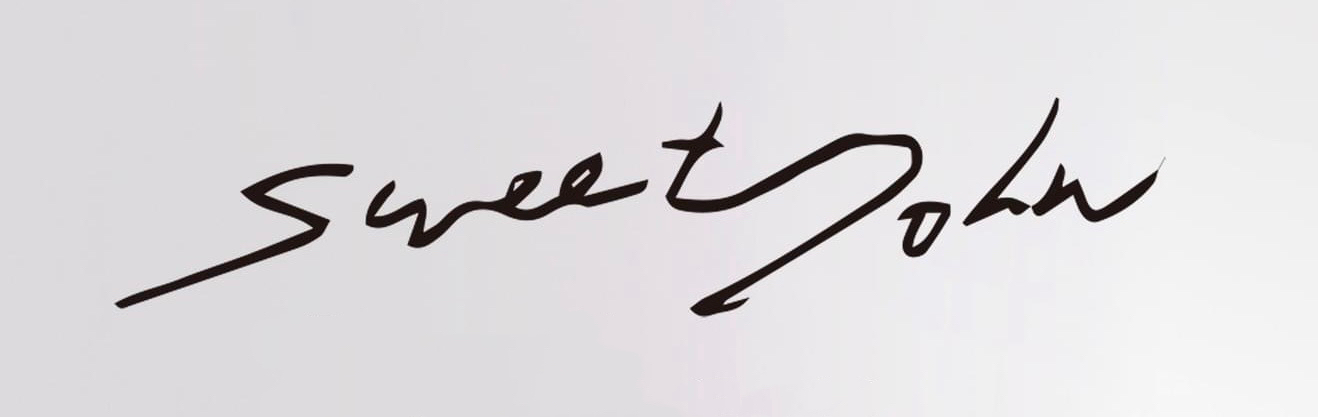 sweet John